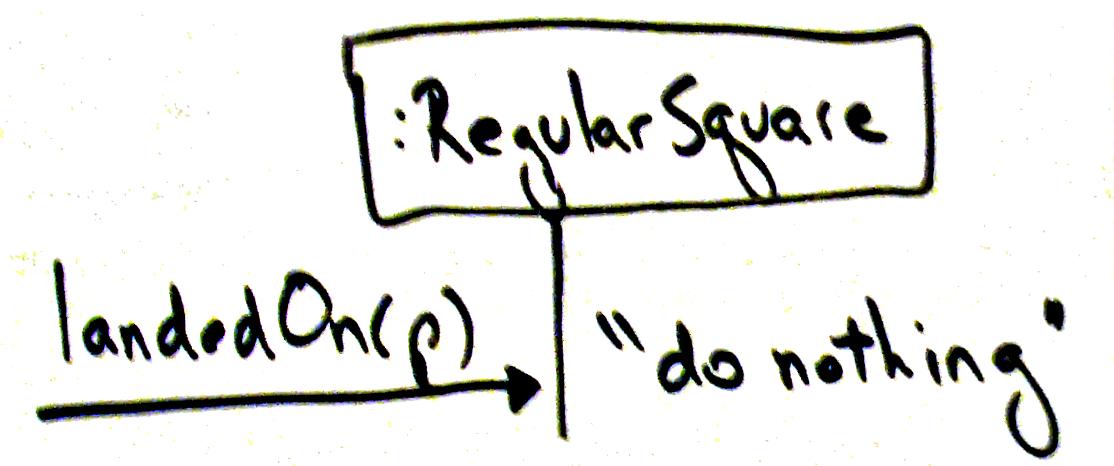 :RegularSquare
landedOn(p)
"do nothing"